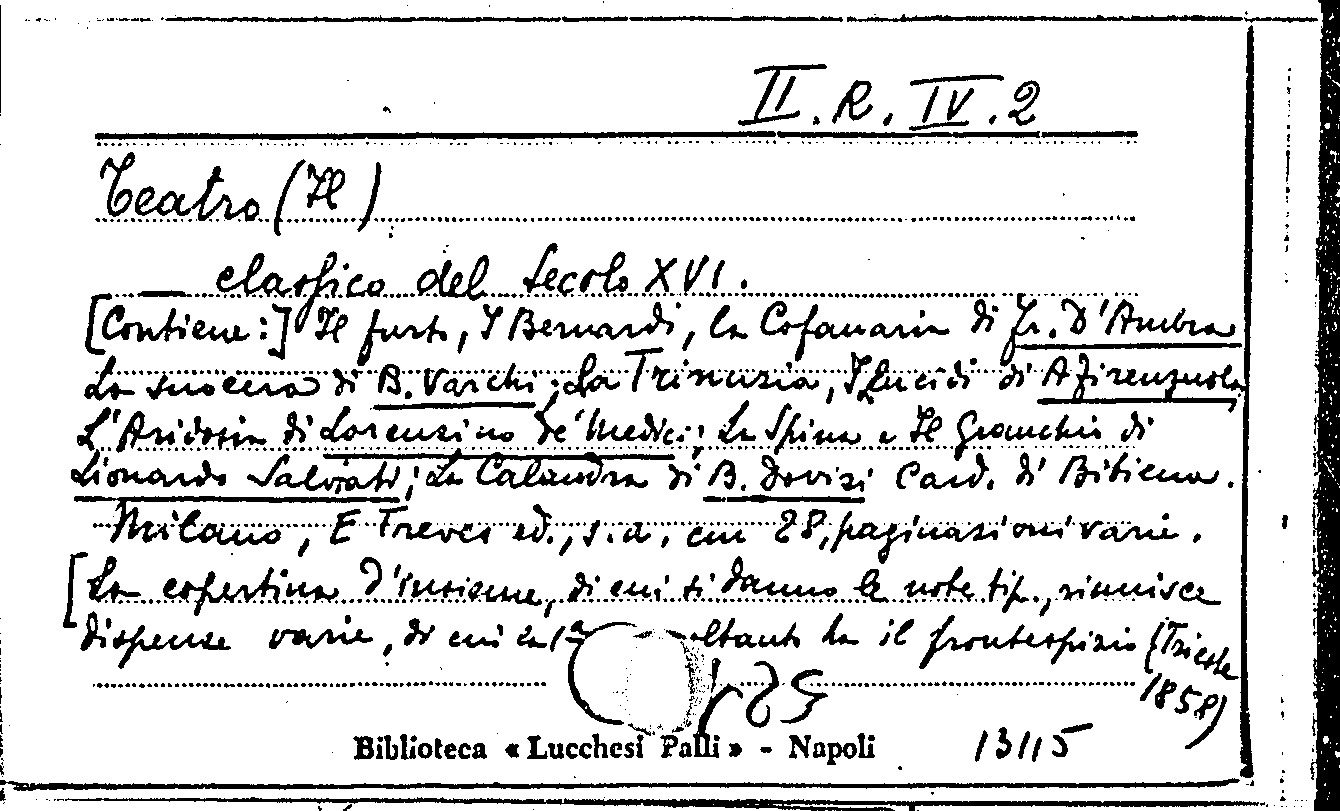 II. R. IV. 2
Teatro (Il)
— classico del secolo XVI.
[Contiene:] Il furto, I Bernardi, la Cofanaria di Fr. D'Ambra
La suocera di B. Varchi; La Trinuzia, I Lucidi di A Firenzuola,
L'Aridosia di Lorenzino de' Medici; La Spina e Il Granchio di
Lionardo Salviati; La Calandra di B. Dovizi Card. di Bibiena.
Milano, E Treves ed., s.a, cm 28, paginazioni varie.
[La copertina d'insieme, di cui si danno le note tip., riunisce
dispense varie, di cui la 1a ltanto ha il frontespizio (Trieste
1858)
Biblioteca « Lucchesi Palli » - Napoli
13115